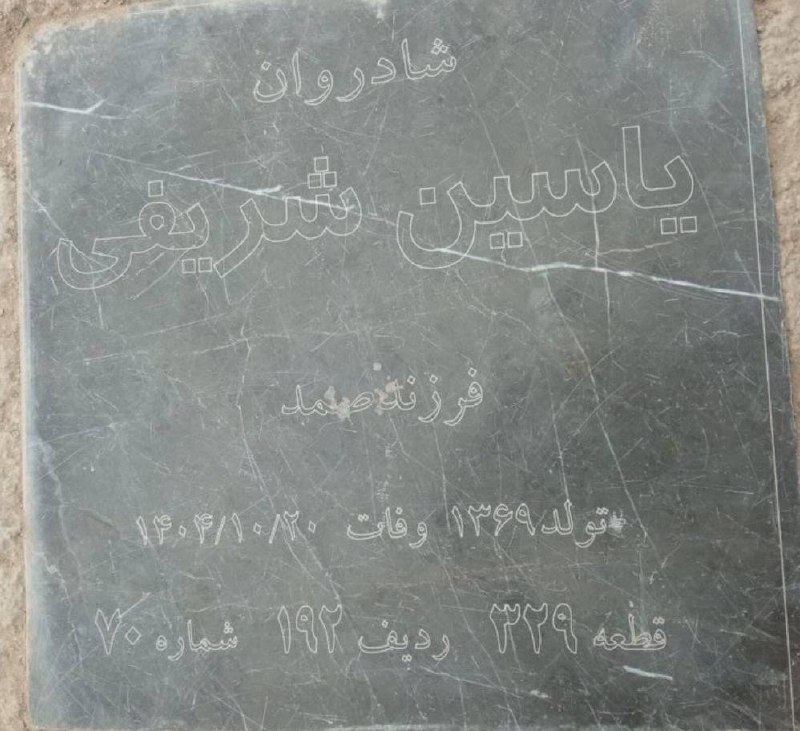 شادروان
یاسین شریفی
فرزند صمد
تولد ۱۳۶۹ وفات ۱۴۰۴/۱۰/۲۰
قطعه ۳۲۹ ردیف ۱۹۲ شماره ۷۰